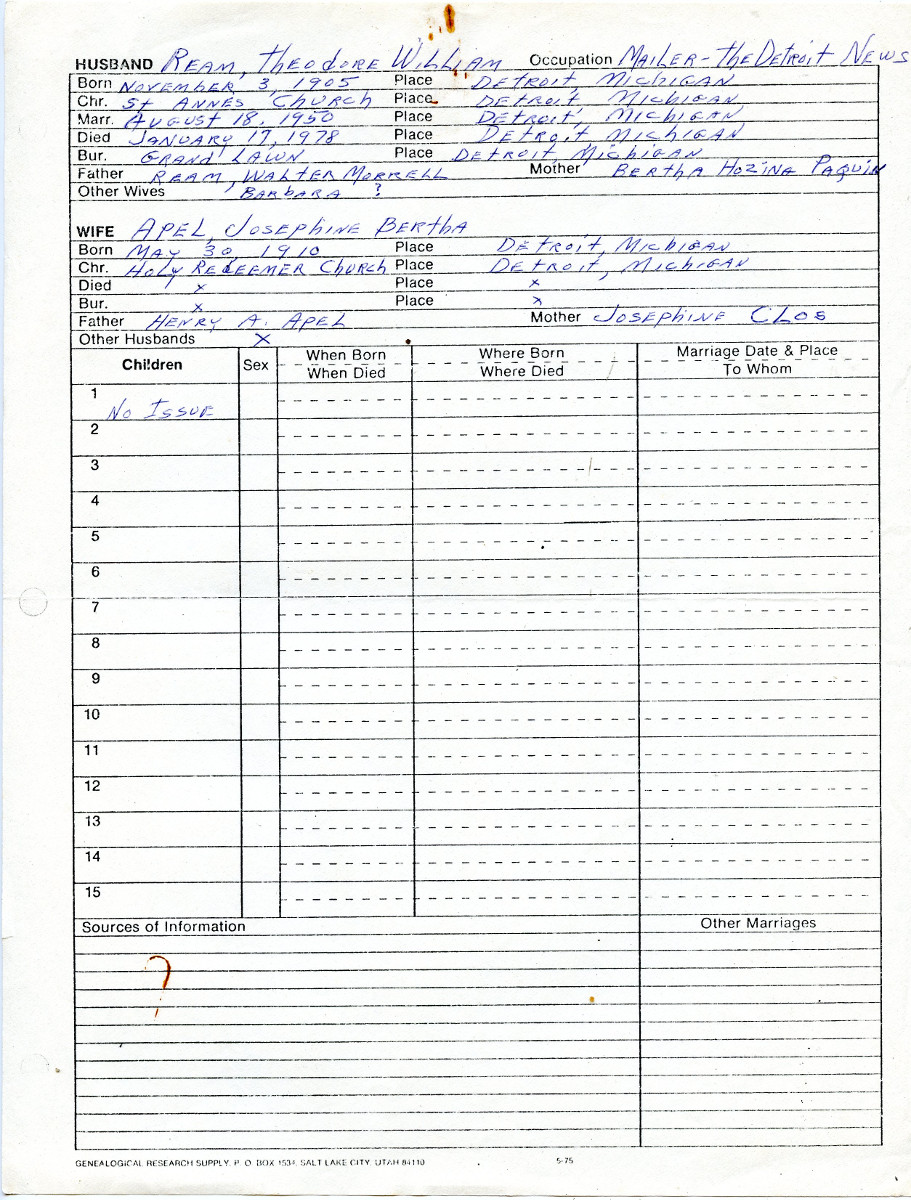 HUSBAND REAM, THEODORE WILLIAM Occupation MAILER-THE DETROIT NEWS
Born NOVEMBER 3, 1905 Place DETROIT, MICHIGAN
Chr. ST ANNES CHURCH Place DETROIT, MICHIGAN
Marr. AUGUST 18, 1950 Place DETROIT, MICHIGAN
Died JANUARY 17, 1978 Place DETROIT MICHIGAN
Bur. GRAND LAWN Place DETROIT, MICHIGAN
Father REAM, WALTER MORRELL Mother BERTHA HOZINA PAQUIN
Other Wives BARBARA ?
WIFE APEL, JOSEPHINE BERTHA
Born MAY 30, 1910 Place DETROIT, MICHIGAN
Chr. HOLY REDEEMER CHURCH Place DETROIT, MICHIGAN
Died x Place x
Bur. x Place x
Father HENRY A. APEL Mother JOSEPHINE CLOS
Other Husbands X
Children Sex When Born Where Born Marriage Date & Place
When Died Where Died To Whom
1
NO ISSUE
2
3
4
5
6
7
8
9
10
11
12
13
14
15
Sources of Information Other Marriages
?
GENEALOGICAL RESEARCH SUPPLY, P. O. BOX 1534, SALT LAKE CITY, UTAH 84110 5-75